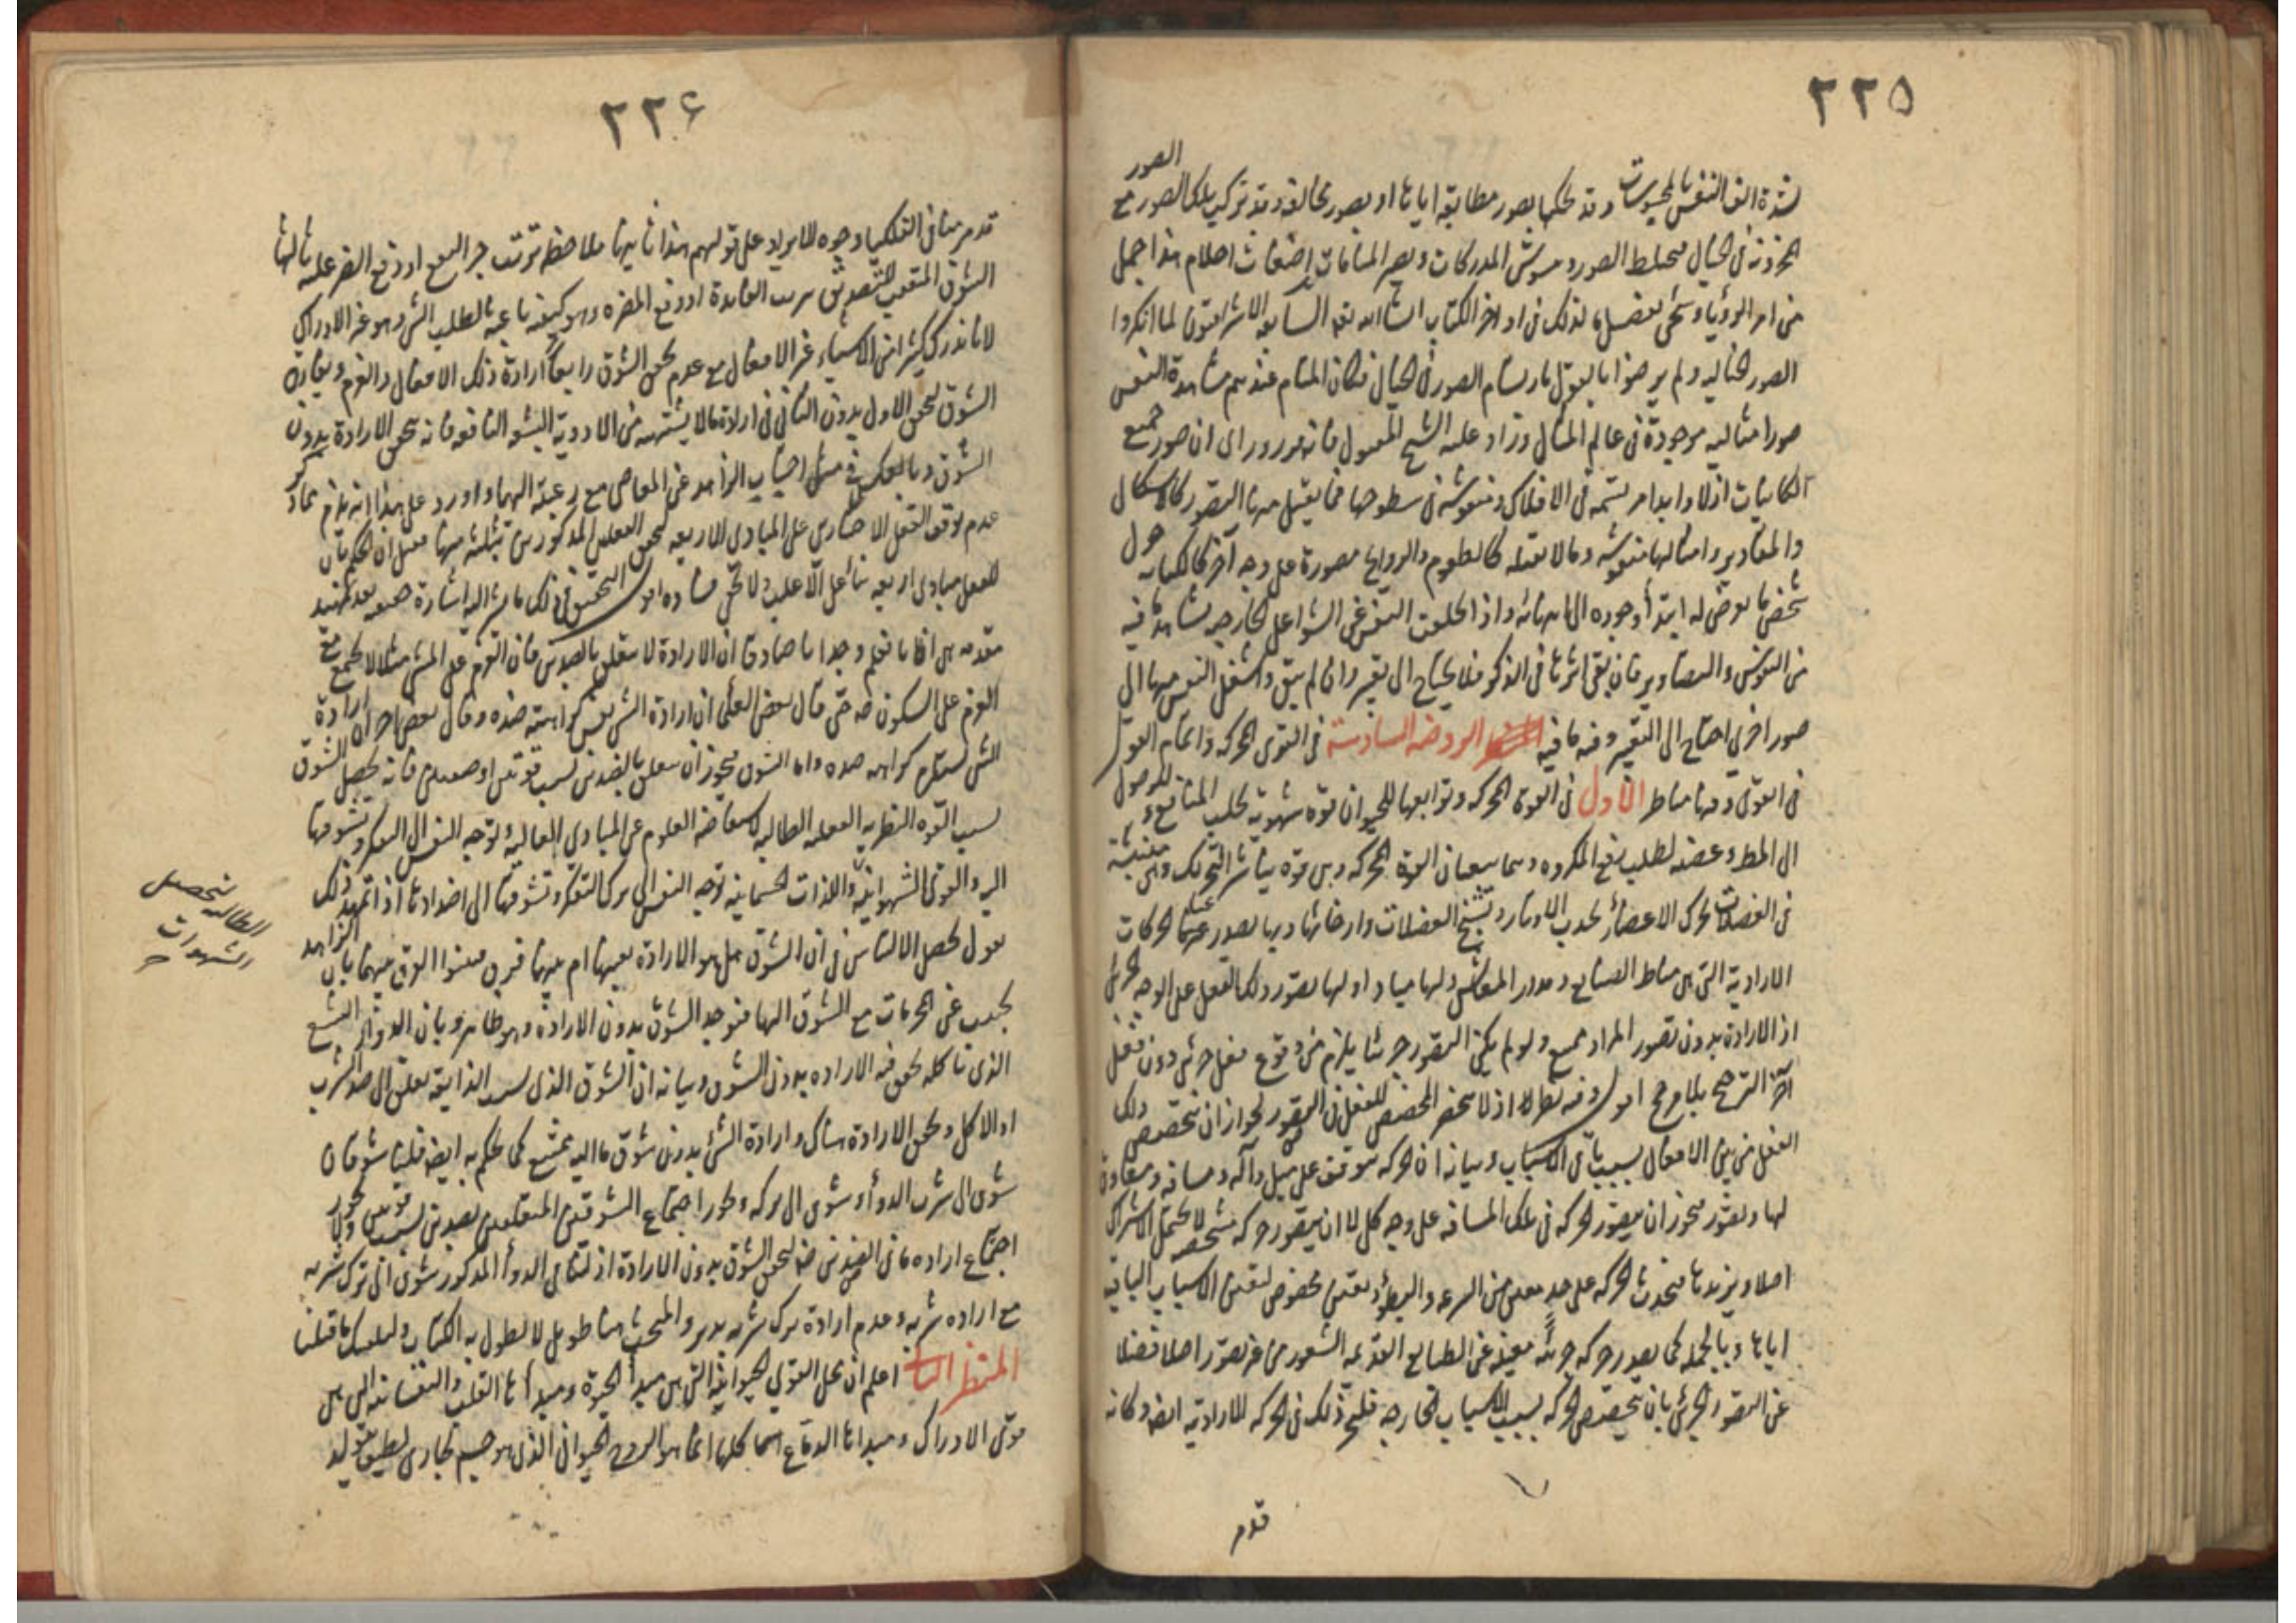 ٢٢٥
الصور
لشدة الف النفس بالمحسوسات وقد تحكيها بصور مطابقة اياها او بصور مخالفة وقد تركب تلك الصور مع
المخزونة في الخيال فيختلط الصور ويتشوش المدركات ويصير المنامات اضغاث احلام هذا جمل
من امر الرؤيا وسيجئ تفصيل لذلك في اواخر الكتاب انشاء الله تعالى الاشراقيون لما انكروا
الصور الخيالية ولم يرضوا بالقول بارتسام الصور في الخيال فكان المنام عندهم مشاهدة النفس
صورا مثالية موجودة في عالم المثال وزاد عليه الشيخ المقتول فانه راى ان صور جميع
الكائنات ازلا وابدا مرتسمة في الافلاك ومنقوشة في سطوحها فما يقبل منها التصور كالاشكال
والمقادير وامثالها منقوشة وما لا يقبله كالطعوم والروايح مصورة على وجه آخر كالكتابة حول
شخص ما يعرض له ابتداء وجوده الى نهايته واذا انخلعت النفس عن الشواغل الخارجية تشاهد فيه
من النقوش والتصاوير فان بقي اثرها في الذكر فلا يحتاج الى تعبير وان لم يبق وانتقل النفس منها الى
صور اخرى احتاج الى التعبير وفيه ما فيه الروضة السادسة في القوى المحركة واتمام القول
في القوى وفيها مناظر الأول في القوة المحركة وتوابعها للحيوان قوة شهوية لجلب المنافع والوصول
الى المط وغضبية لطلب دفع المكروه وهما يتبعان القوة المحركة وهي قوة يباشر التحريك وهي منبثة
في العضلات تحرك الاعضاء بجذب الاوتار وتشنج العضلات وارخائها وبها يصدر عنها الحركات
الارادية التي هي مناط الصنايع ومدار المعايش ولها مباد اولها تصور ذلك الفعل على الوجه الجزئي
اذ الارادة بدون تصور المراد ممتنع ولو لم يكن التصور جزئيا يلزم من وقوع فعل جزئي دون فعل
آخر الترجيح بلا مرجح اقول وفيه نظر اذ لا ينحصر المخصص للفعل في التصور لجواز ان يتخصص ذلك
الفعل من بين الافعال بسبب باقي الاسباب وبيانه ان الحركة تتوقف على ميل وآلة ومسافة ومعاون
لها وتصور فيجوز ان يتصور الحركة في تلك المسافة على وجه كلي لا ان يتصور حركة مشخصة لا يحتمل الاشتراك
اصلا ويريدها فيحدث الحركة على حد معين من السرعة والبطؤ بتعين مخصوص لتعين الاسباب الباقية
اياها وبالجملة كما يصدر حركة جزئية معينة عن الطبايع العديمة الشعور من غير تصور اصلا فضلا
عن التصور الجزئي بان يتخصص الحركة بسبب الاسباب الخارجية فليجز ذلك في الحركة الارادية ايضا وكانه
قدم
٢٢٦
قدم منا في الفلكيات وجوه للايراد على قولهم هذا ثانيها ملاحظة ترتب جر النفع او دفع الضر عليه ثالثها
الشوق المنبعث للتصديق بترتب الفائدة او دفع المضرة وهو كيفية باعثة لطلب الشئ وهو غير الادراك
لانا ندرك كثيرا من الاشياء غير الافعال مع عدم تحقق الشوق رابعها ارادة ذلك الافعال والعزم ويفارق
الشوق لتحقق الاول بدون الثاني في ارادة ما لا يشتهيه من الادوية البشعة النافعة فانه تحقق الارادة بدون
الشوق وبالعكس في مثل اجتناب الزاهد عن المعاصي مع رغبته اليها واورد على هذا انه يلزم مما ذكر
عدم توقف الفعل الاختياري على المبادي الاربعة لتحقق الفعلين المذكورين بثلثة منها فقيل ان الحكم بان
للفعل مبادي اربعة بناء على الاغلب ولا يخفى فساده اقول التحقيق في ذلك ما يشير اليه اشارة خفية بعد تمهيد
مقدمة هي انا نعلم وجدانا صادقا ان الارادة لا يتعلق بالضدين فان العزم على المشي مثلا لا يجتمع مع
العزم على السكون فيه حتى قال بعض العلماء ان ارادة الشئ نفس كراهة ضده وقال بعض آخر ان ارادة
الشئ تستلزم كراهة ضده واما الشوق فيجوز ان يتعلق بالضدين بسبب قوتين او صفتين فانه يحصل الشوق
بسبب القوة النظرية العقلية الطالبة لاستفاضة العلوم عن المبادي العالية توجه النفس الى التفكر وتشوقها
اليه والقوى الشهوانية واللذات الجسمانية توجه النفس الى ترك التفكر وتشوقها الى اضدادها اذا تمهد ذلك
نقول لحصل الالتباس في ان الشوق هل هو الارادة بعينها ام بينهما فرق فبينوا الفرق بينهما بان الزاهد
يجتنب عن المحرمات مع الشوق اليها فيوجد الشوق بدون الارادة وهو ظاهر وبان الدواء البشع
الذي ناكله تحقق فيه الارادة بدون الشوق وبيانه ان الشوق الذي بسبب الذايقة يتعلق الى ضد الشرب
او الاكل وتحقق الارادة هناك وارادة الشئ بدون شوق ما اليه ممتنع كما يحكم به ايضا فلنا شوقان
شوق الى شرب الدواء وشوق الى تركه ويجوز اجتماع الشوقين المتعلقين بضدين بسبب قوتين ولا يجوز
اجتماع ارادة ما في الضدين فيه تحقق الشوق بدون الارادة اذ لنا في الدواء المذكور شوق الى ترك شربه
مع ارادة شربه وعدم ارادة ترك شربه تدبر والمبحث هنا طويل لا نطول به الكتاب وليكفك ما قلنا
المنظر الثاني اعلم ان محل القوى الحيوانية التي هي مبدأ الحيوة ومبدأها القلب والنفسانية التي هي
قوى الادراك ومبدأها الدماغ انما كلها انما هو الروح الحيواني الذي هو جسم بخاري لطيف يتولد
الطالبة لتحصيل
الشهوات